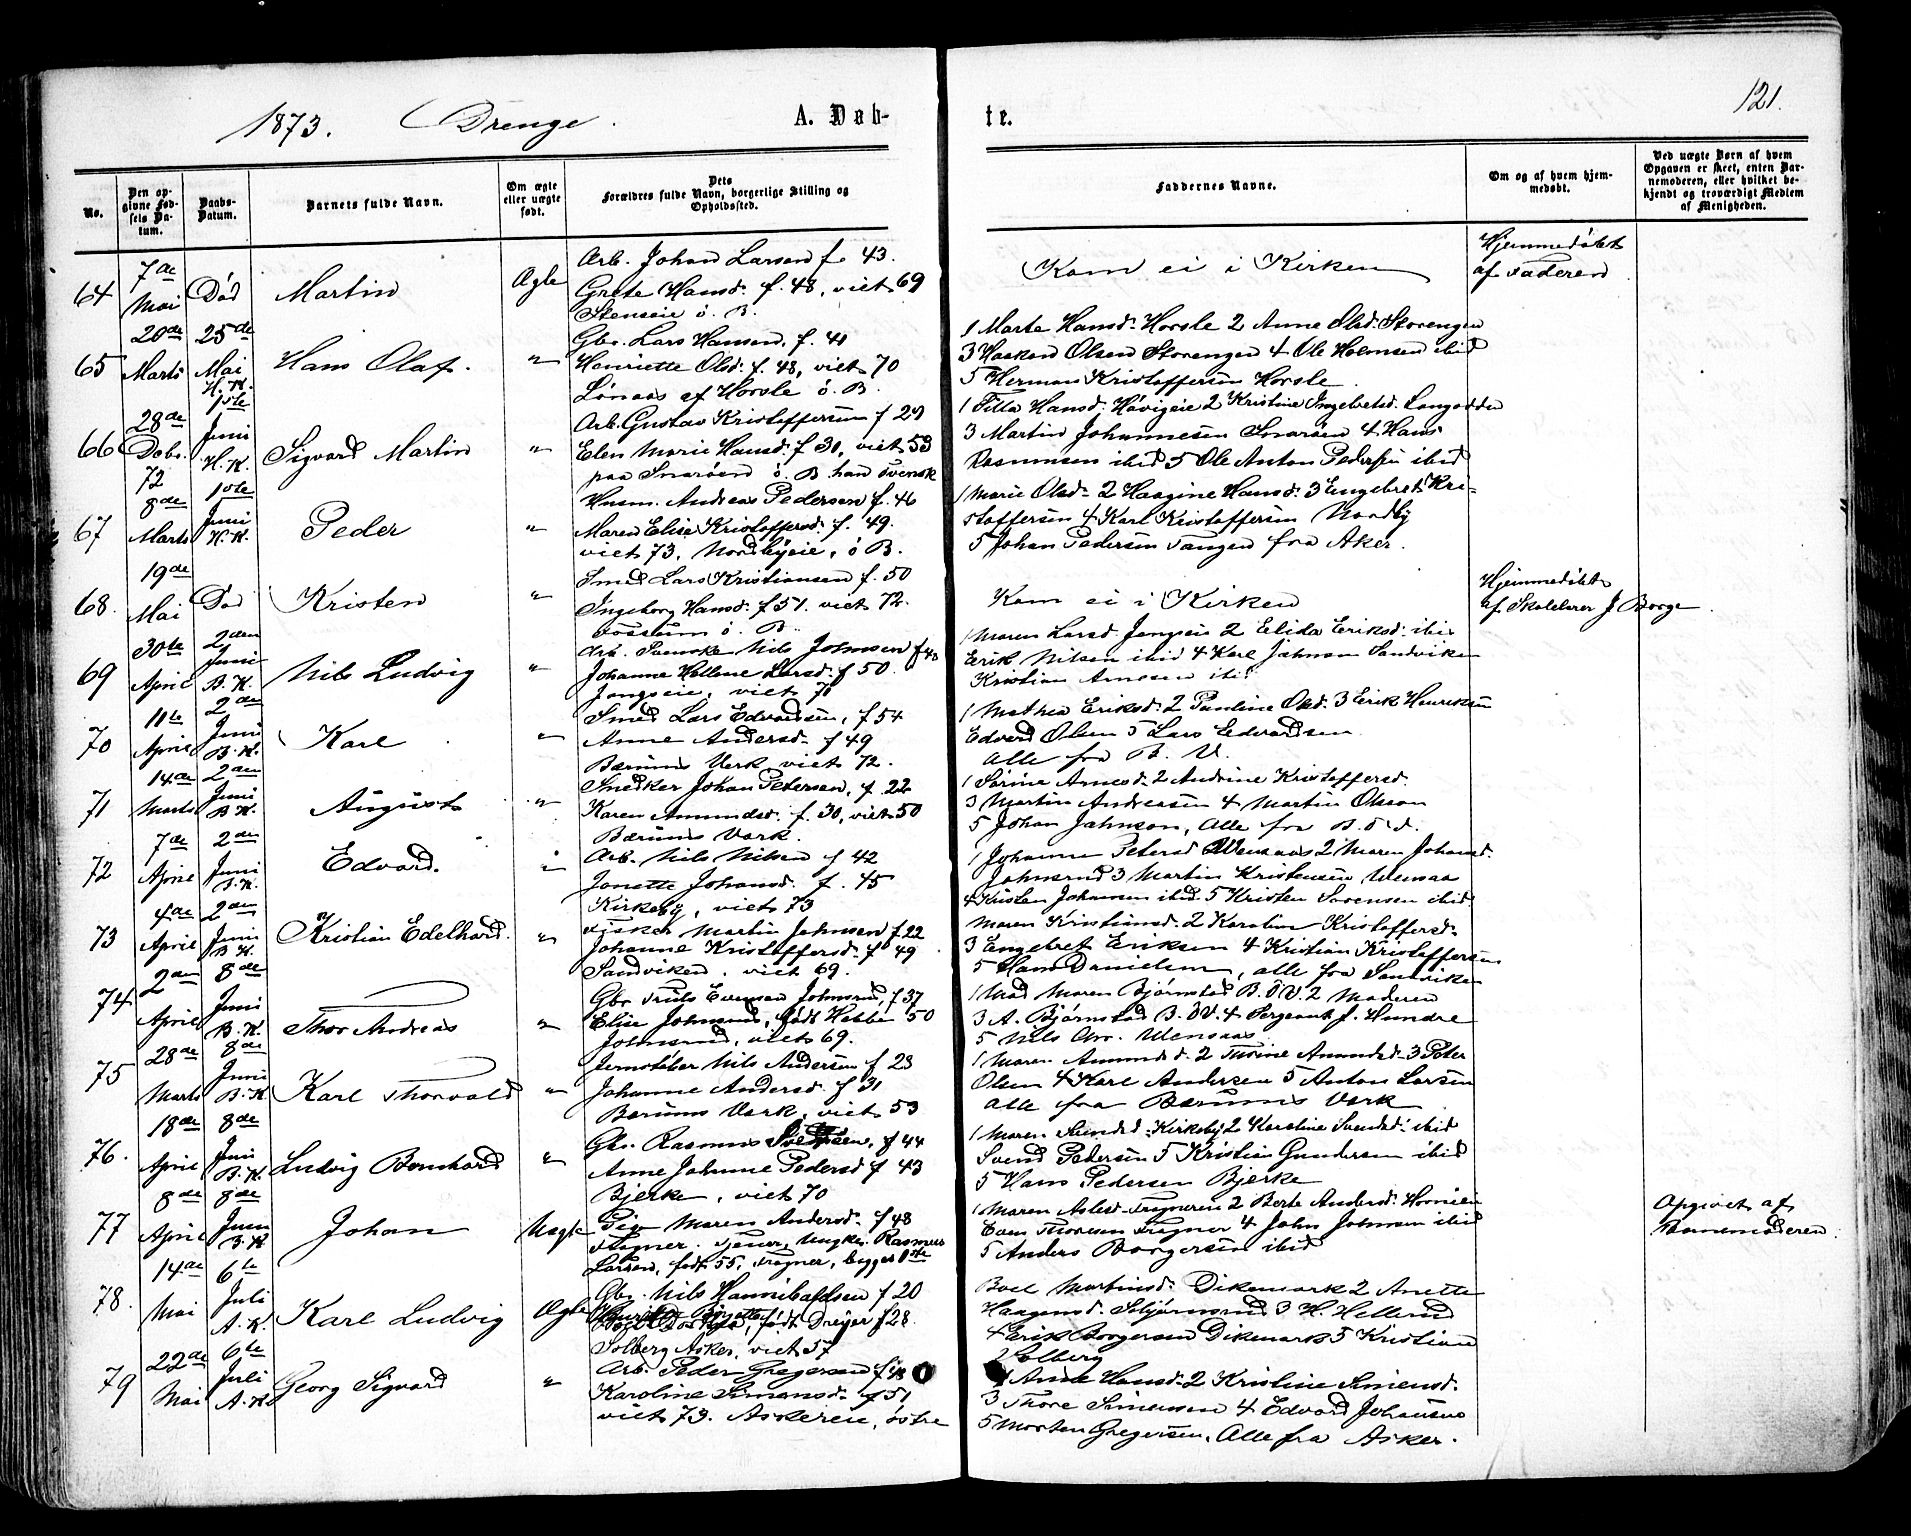 1873. Drenge. A. Døb-
te. 121.
No.
Den op-
givne Fød-
sels Da-
tum.
Daabs-
Datum.
Barnets fulde Navn.
Om ægte
eller uægte
født.
Dets
Forældres fulde Navn, borgerlige Stilling og
Opholdssted.
Faddernes Navne.
Om og af hvem hjem-
medøbt.
Ved uægte Børn af hvem
Opgaven er skeet, enten Bar-
nemoderen, eller hvilket be-
kjendt og troværdigt Medlem
af Menigheden.
64 7de Mai Død Martin Ægte
Arb. Johan Larsen f. 43.
Grete Hansd. f. 48, viet 69
Stenseie ö. B.
Kom ei i Kirken
Hjemmedöbt
af Faderen
65 20de Marts 25de Mai H. K. Hans Olaf. "
Gbr. Lars Hansen, f. 41
Henriette Olsd. f. 48, viet 70
Lönaas af Horsle ö. B.
1 Marte Hansd. Horsle 2 Anne Olsd. Storengen
3 Haaken Olsen Storengen 4 Ole Holmsen ibid
5 Herman Kristoffersen Horsle
66 28de Debr. 72 1ste Juni H. K. Sigvard Martin "
Arb. Gustav Kristoffersen f 29
Elen Marie Hansd. f 30, viet 53
paa Snarøen ö. B. han svensk
1 Hansd. Hövigeie 2 Kristine Ingebretsd. Langodden
3 Martin Johannesen Snaröen 4 Hans
Rasmussen ibid 5 Ole Anton Pedersen ibid
67 8de Marts 1ste Juni H. K. Peder "
Husm. Andreas Pedersen f. 46
Maren Elise Kristoffersd. f. 49.
viet 73, Nordbyeie, ö B.
1 Marie Olsd. 2 Haagine Hansd. 3 Engebret Kri-
stoffersen 4 Karl Kristoffersen Nordby
5 Johan Pedersen Tangen fra Aker.
68. 19de Mai Död Kristen "
Smed Lars Kristiansen f. 50
Ingeborg Hansd. f 51. viet 72.
Fossum ö. B.
Kom ei i Kirken
Hjemmedöbt
af Skolelærer J Borge
69 30te April 2den Juni B. K. Nils Ludvig "
Arb. Svenske Nils Johnsen f 48
Johanne Hellene Larsd. f 50.
Jongseie, viet 71
1 Maren Larsd. Jongseie 2 Elida Eriksd. ibid
Erik Nilsen ibid 4 Karl Johnsen Sandviken
Kristian Arnesen ibid
70 11te April 2den Juni B. K. Karl "
Smed Lars Edvardsen, f 54
Anne Andersd. f 49
Bærums Verk, viet 72.
1 Mathea Eriksd. 2 Pauline Olsd. 3 Erik Henriksen
Edvard Olsen 5 Lars Edvardsen
Alle fra B. V.
71 14de Marts 2den Juni B. K. August "
Snedker Johan Petersen, f 22
Karen Amundsd. f. 30, viet 50
Bærums Værk.
1 Sörine Arnesd. 2 Andrine Kristoffersd.
3 Martin Andreasen 4 Martin Olsson
5 Johan Johnson, Alle fra B.
72 7de April 2den Juni B. K. Edvard. "
Arb. Nils Nilsen f 42
Jonette Johansd. f. 45
Kirkeby, viet 73
1 Johanne Petersd 2 Maren Johansd.
Johnsrud 3 Martin Kristensen
4 Kristen Johansen ibid 5 Kristen Sörensen ibid
73 4de April 2den Juni B. K. Kristian Edelhard. "
Fisker Martin Johnsen f 22
Johanne Kristoffersd. f 49
Sandviken, viet 69.
Maren Kristiansd. 2 Karoline Kristoffersd.
3 Engebret Eriksen 4 Kristian Kristoffersen
5 Hans Danielsen, alle fra Sandviken
74 2den April 8de Juni B. K. Thor Andreas "
Gbr Truls Evensen Johnsrud, f 37
Elise Johnsrud, född Hebbe 50
Johnsrud, viet 69.
1 Mad Maren Björnstad B. Ö V. 2 Moderen
3 A. Björnstad B. Ö V. 4 Sergeant J. Hundre
5 Nils
75 28de Marts 8de Juni B. K. Karl Thorvald "
Jernstöber Nils Andersen f 23
Johanne Andersd. f 31
Bærums Værk, viet 53
1 Maren Amundsd. 2 Thrine Amundsd. 3 Peter
Olsen 4 Karl Andersen 5 Anton Larsen
alle fra Bærums Værk
76. 18de April 8de Juni B. K. Ludvig Bernhard "
Gbr. Rasmus Svendsen, f 44
Anne Johanne Pedersd f 43
Bjerke, viet 70
1 Maren Svendsd. Kirkeby 2 Karoline Svendsd. ibid
Svend Pedersen 5 Kristian Gundersen ibid
5 Hans Pedersen Bjerke
77 8de April 8de Juni B. K Johan Uægte
Pige Maren Andersd. f 48
Tjener, Ungk. Rasmus
Larsen, født 55, begges 1ste
1 Maren Aslesd. 2 Berte Andersd.
Even Thoresen 4 John Johnsen ibid
5 Anders Borgersen ibid
Opgivet af
Barnemoderen.
78. 14de Mai 6te Juli A. K. Karl Ludvig Ægte
Gbr. Nils Hannibalsen f 20
født Dreyer f 28.
Solberg Asker, viet 57
Boel Martinsd. Dikemark 2 Anette
Haagensd. 3 H. Hellerud
4 Erik Borgersen Dikemark 5 Kristian
Solberg
79 22de Mai 6te Juli A. K. Georg Sigvard "
Arb. Peder Gregersen f 48
Karoline Simensd. f 51
viet 73. Askereie, östre
1 Anne Hansd. 2 Kristine Simensd.
3 Thore Simensen 4 Edvard Johansen
5 Morten Gregersen. Alle fra Asker.